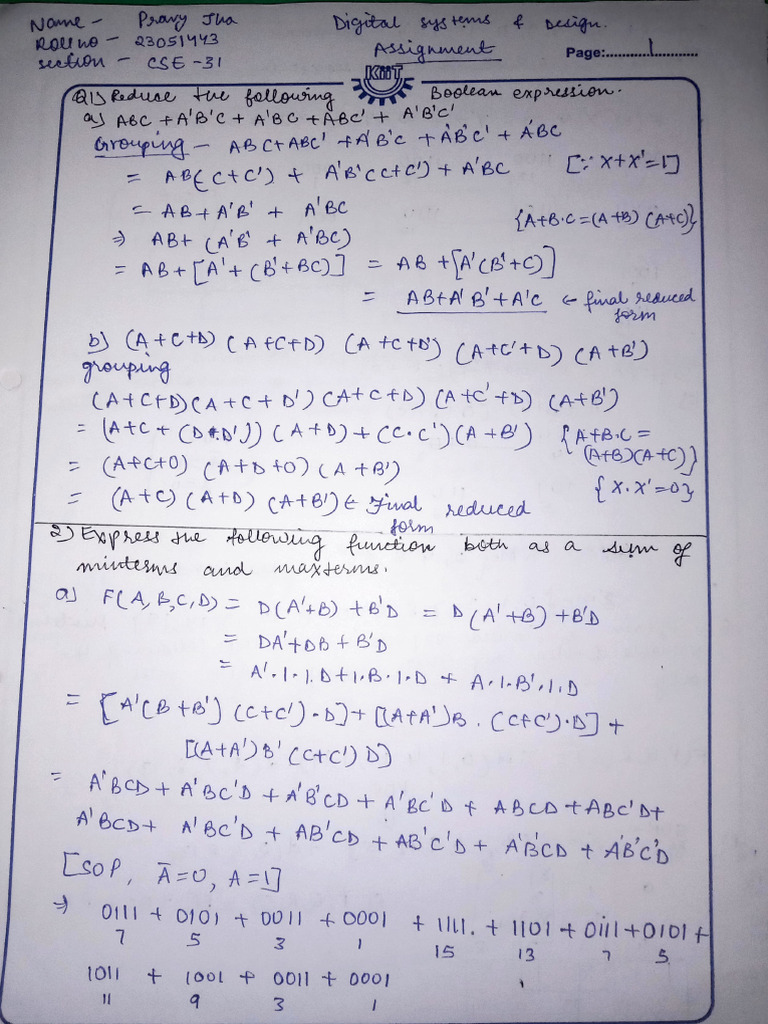 Name - Prany Jha
Digital systems & Design.
Roll no - 23051443
Assignment
section - CSE-31
Page:............1............
KiiT
Q1) Reduce the following Boolean expression.
a) ABC + A'B'C + A'BC + ABC' + A'B'C'
Grouping - ABC+ABC' + A'B'C + A'B'C' + A'BC
= AB(C+C') + A'B'(C+C') + A'BC [∵ X+X'=1]
= AB+A'B' + A'BC {A+B·C=(A+B) (A+C)}
⇒ AB+ (A'B' + A'BC)
= AB+[A'+(B'+BC)] = AB +[A'(B'+C)]
= AB+A'B'+A'C ← final reduced form
b) (A+C+D) (A+C+D) (A+C+D') (A+C'+D) (A+B')
grouping
(A+C+D)(A+C+D')(A+C+D) (A+C'+D) (A+B')
= (A+C+(D·D')) (A+D)+(C·C')(A+B') {A+B·C = (A+B)(A+C)}
= (A+C+0) (A+D+0) (A+B')
= (A+C) (A+D) (A+B') ← Final reduced form {X·X'=0}
2) Express the following function both as a sum of
minterms and maxterms.
a) F(A,B,C,D) = D(A'+B) +B'D = D(A'+B) +B'D
= DA'+DB+B'D
= A'·1·1·D+1·B·1·D + A·1·B'·1·D
= [A'(B+B') (C+C')·D]+[(A+A')B·(C+C')·D] +
[(A+A')B'(C+C')D]
= A'BCD+ A'BC'D +A'B'CD+ A'BC'D + ABCD+ABC'D+
A'BCD+ A'BC'D + AB'CD + AB'C'D + A'B'CD + A'B'C'D
[SOP, Ā=0, A=1]
⇒ 0111 + 0101 + 0011 + 0001 + 1111. + 1101 + 0111 +0101 +
7 5 3 1 15 13 7 5
1011 + 1001 + 0011 + 0001
11 9 3 1